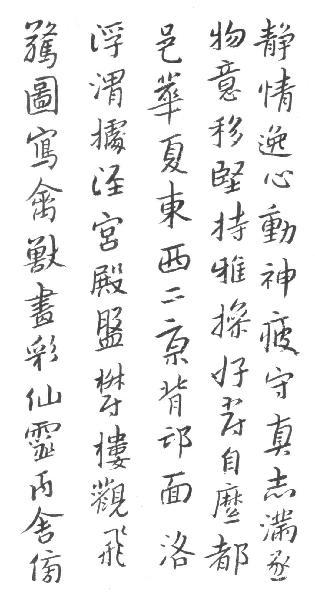 静情逸心動神疲守真志滿逐
物意移堅持雅操好爵自縻都
邑華夏東西二京背邙面洛
浮渭據涇宮殿盤鬱樓觀飛
驚圖寫禽獸畫彩仙靈丙舍傍